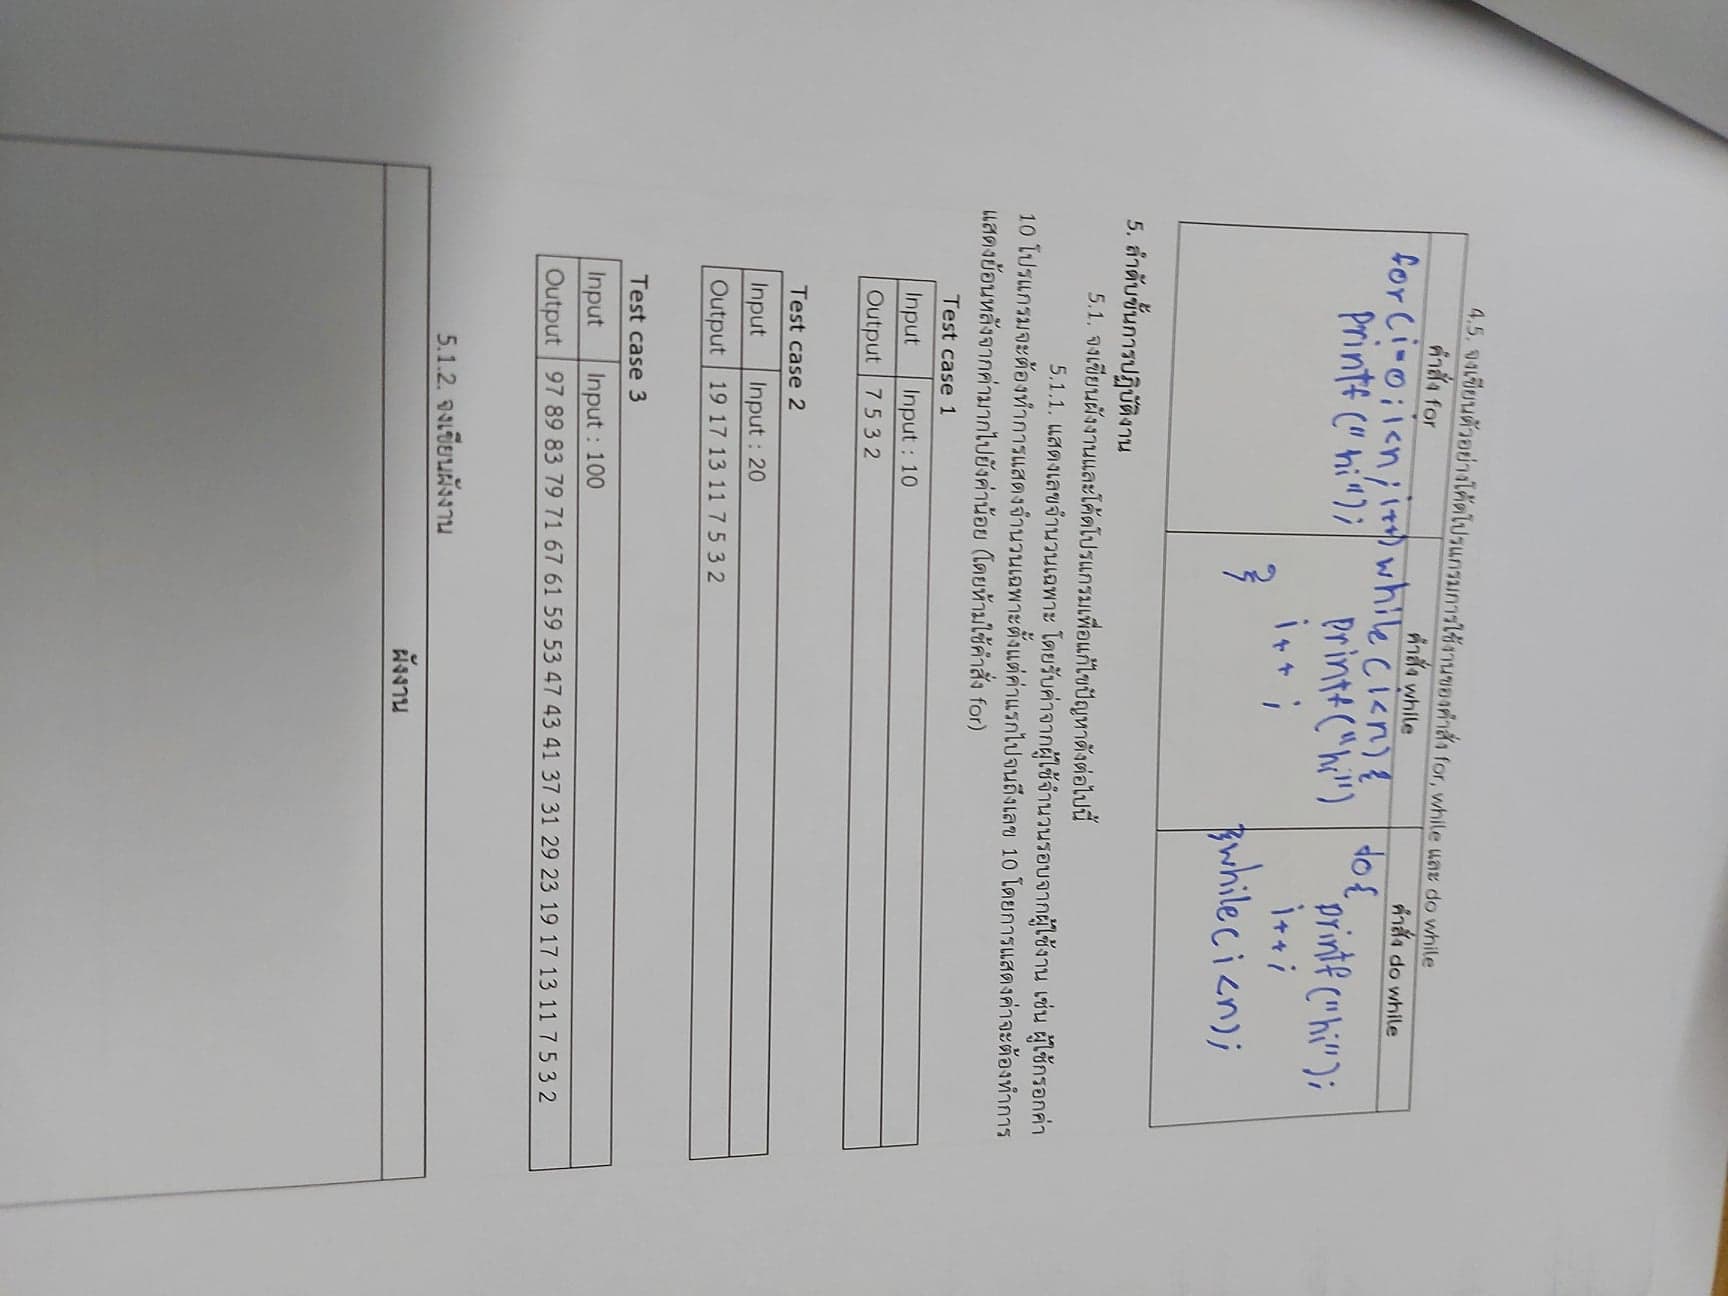 4.5. จงเขียนตัวอย่างโค้ดโปรแกรมการใช้งานของคำสั่ง for, while และ do while
คำสั่ง for
for(i=0;i<n;i++)
printf("hi");
คำสั่ง while
while(i<n){
printf("hi")
i++;
}
คำสั่ง do while
do{
printf("hi");
i++;
}while(i<n);
5. ลำดับขั้นการปฏิบัติงาน
5.1. จงเขียนผังงานและโค้ดโปรแกรมเพื่อแก้ไขปัญหาดังต่อไปนี้
5.1.1. แสดงเลขจำนวนเฉพาะ โดยรับค่าจากผู้ใช้จำนวนรอบจากผู้ใช้งาน เช่น ผู้ใช้กรอกค่า
10 โปรแกรมจะต้องทำการแสดงจำนวนเฉพาะตั้งแต่ค่าแรกไปจนถึงเลข 10 โดยการแสดงค่าจะต้องทำการ
แสดงย้อนหลังจากค่ามากไปยังค่าน้อย (โดยห้ามใช้คำสั่ง for)
Test case 1
Input Input : 10
Output 7 5 3 2
Test case 2
Input Input : 20
Output 19 17 13 11 7 5 3 2
Test case 3
Input Input : 100
Output 97 89 83 79 71 67 61 59 53 47 43 41 37 31 29 23 19 17 13 11 7 5 3 2
5.1.2. จงเขียนผังงาน
ผังงาน